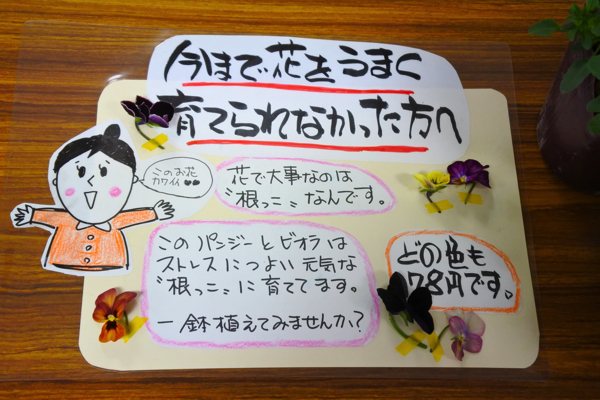 今まで花をうまく
育てられなかった方へ
このお花
カワイイ♥♥
花で大事なのは
〝根っこ〟なんです。
このパンジーとビオラは
ストレスにつよい元気な
〝根っこ〟に育ててます。
一鉢植えてみませんか?
どの色も
78円です。